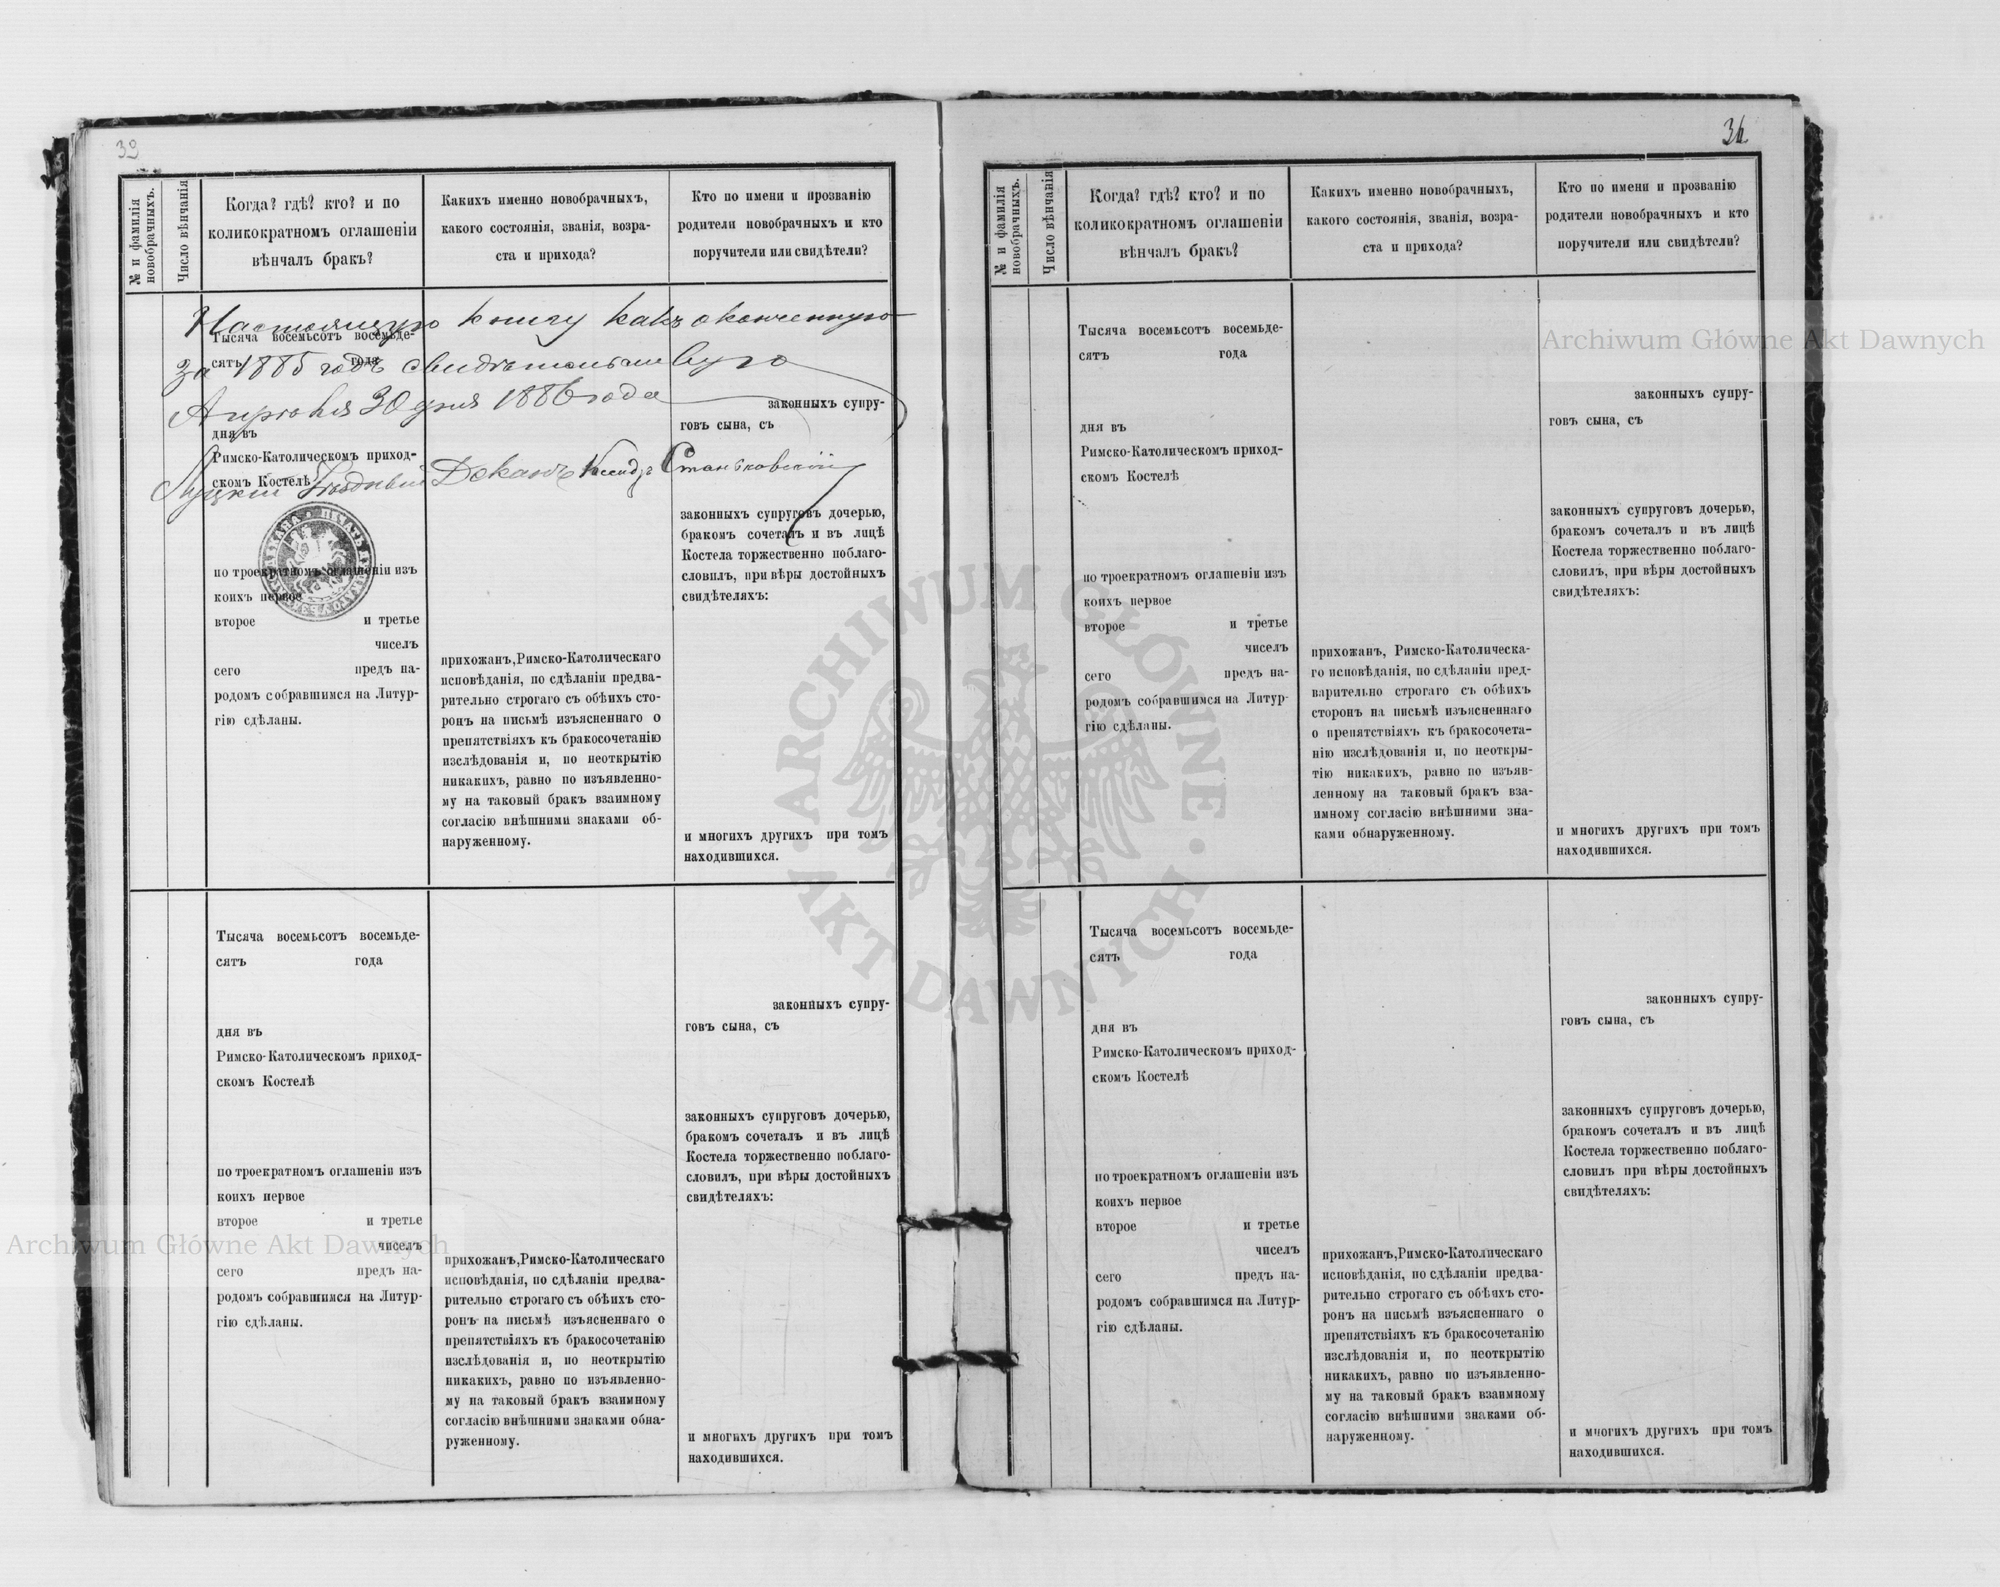 39
№ и фамилія
новобрачныхъ.
Число вѣнчанія
Когда? гдѣ? кто? и по
коликократномъ оглашеніи
вѣнчалъ бракъ?
Какихъ именно новобрачныхъ,
какого состоянія, званія, возра-
ста и прихода?
Кто по имени и прозванію
родители новобрачныхъ и кто
поручители или свидѣтели?
Настоящую книгу какъ оконченную
за 1885 годъ свидѣтельствую
30 дня 1886 года
Луцкій Уѣздный Деканъ Ксендзъ Станьковскій
Тысяча восемьсотъ восемьде-
сятъ года
дня въ
Римско-Католическомъ приход-
скомъ Костелѣ
по троекратномъ оглашеніи изъ
коихъ первое
второе и третье
чиселъ
сего предъ на-
родомъ собравшимся на Литур-
гію сдѣланы.
прихожанъ,Римско-Католическаго
исповѣданія, по сдѣланіи предва-
рительно строгаго съ обѣихъ сто-
ронъ на письмѣ изъясненнаго о
препятствіяхъ къ бракосочетанію
изслѣдованія и, по неоткрытію
никакихъ, равно по изъявленно-
му на таковый бракъ взаимному
согласію внѣшними знаками об-
наруженному.
законныхъ супру-
говъ сына, съ
законныхъ супруговъ дочерью,
бракомъ сочеталъ и въ лицѣ
Костела торжественно поблаго-
словилъ, при вѣры достойныхъ
свидѣтеляхъ:
и многихъ другихъ при томъ
находившихся.
Тысяча восемьсотъ восемьде-
сятъ года
дня въ
Римско-Католическомъ приход-
скомъ Костелѣ
по троекратномъ оглашеніи изъ
коихъ первое
второе и третье
чиселъ
сего предъ на-
родомъ собравшимся на Литур-
гію сдѣланы.
прихожанъ,Римско-Католическаго
исповѣданія, по сдѣланіи предва-
рительно строгаго съ обѣихъ сто-
ронъ на письмѣ изъясненнаго о
препятствіяхъ къ бракосочетанію
изслѣдованія и, по неоткрытію
никакихъ, равно по изъявленно-
му на таковый бракъ взаимному
согласію внѣшними знаками обна-
руженному.
законныхъ супру-
говъ сына, съ
законныхъ супруговъ дочерью,
бракомъ сочеталъ и въ лицѣ
Костела торжественно поблаго-
словилъ, при вѣры достойныхъ
свидѣтеляхъ:
и многихъ другихъ при томъ
находившихся.
№ и фамилія
новобрачныхъ.
Число вѣнчанія
Когда? гдѣ? кто? и по
коликократномъ оглашеніи
вѣнчалъ бракъ?
Какихъ именно новобрачныхъ,
какого состоянія, званія, возра-
ста и прихода?
Кто по имени и прозванію
родители новобрачныхъ и кто
поручители или свидѣтели?
Тысяча восемьсотъ восемьде-
сятъ года
дня въ
Римско-Католическомъ приход-
скомъ Костелѣ
по троекратномъ оглашеніи изъ
коихъ первое
второе и третье
чиселъ
сего предъ на-
родомъ собравшимся на Литур-
гію сдѣланы.
прихожанъ, Римско-Католическа-
го исповѣданія, по сдѣланіи пред-
варительно строгаго съ обѣихъ
сторонъ на письмѣ изъясненнаго
о препятствіяхъ къ бракосочета-
нію изслѣдованія и, по неоткры-
тію никакихъ, равно по изъяв-
ленному на таковый бракъ вза-
имному согласію внѣшними зна-
ками обнаруженному.
законныхъ супру-
говъ сына, съ
законныхъ супруговъ дочерью,
бракомъ сочеталъ и въ лицѣ
Костела торжественно поблаго-
словилъ, при вѣры достойныхъ
свидѣтеляхъ:
и многихъ другихъ при томъ
находившихся.
Тысяча восемьсотъ восемьде-
сятъ года
дня въ
Римско-Католическомъ приход-
скомъ Костелѣ
по троекратномъ оглашеніи изъ
коихъ первое
второе и третье
чиселъ
сего предъ на-
родомъ собравшимся на Литур-
гію сдѣланы.
прихожанъ,Римско-Католическаго
исповѣданія, по сдѣланіи предва-
рительно строгаго съ обѣихъ сто-
ронъ на письмѣ изъясненнаго о
препятствіяхъ къ бракосочетанію
изслѣдованія и, по неоткрытію
никакихъ, равно по изъявленно-
му на таковый бракъ взаимному
согласію внѣшними знаками об-
наруженному.
законныхъ супру-
говъ сына, съ
законныхъ супруговъ дочерью,
бракомъ сочеталъ и въ лицѣ
Костела торжественно поблаго-
словилъ при вѣры достойныхъ
свидѣтеляхъ:
и многихъ другихъ при томъ
находившихся.
Archiwum Główne Akt Dawnych
Archiwum Główne Akt Dawnych
ARCHIWUM GŁÓWNE · AKT DAWNYCH ·